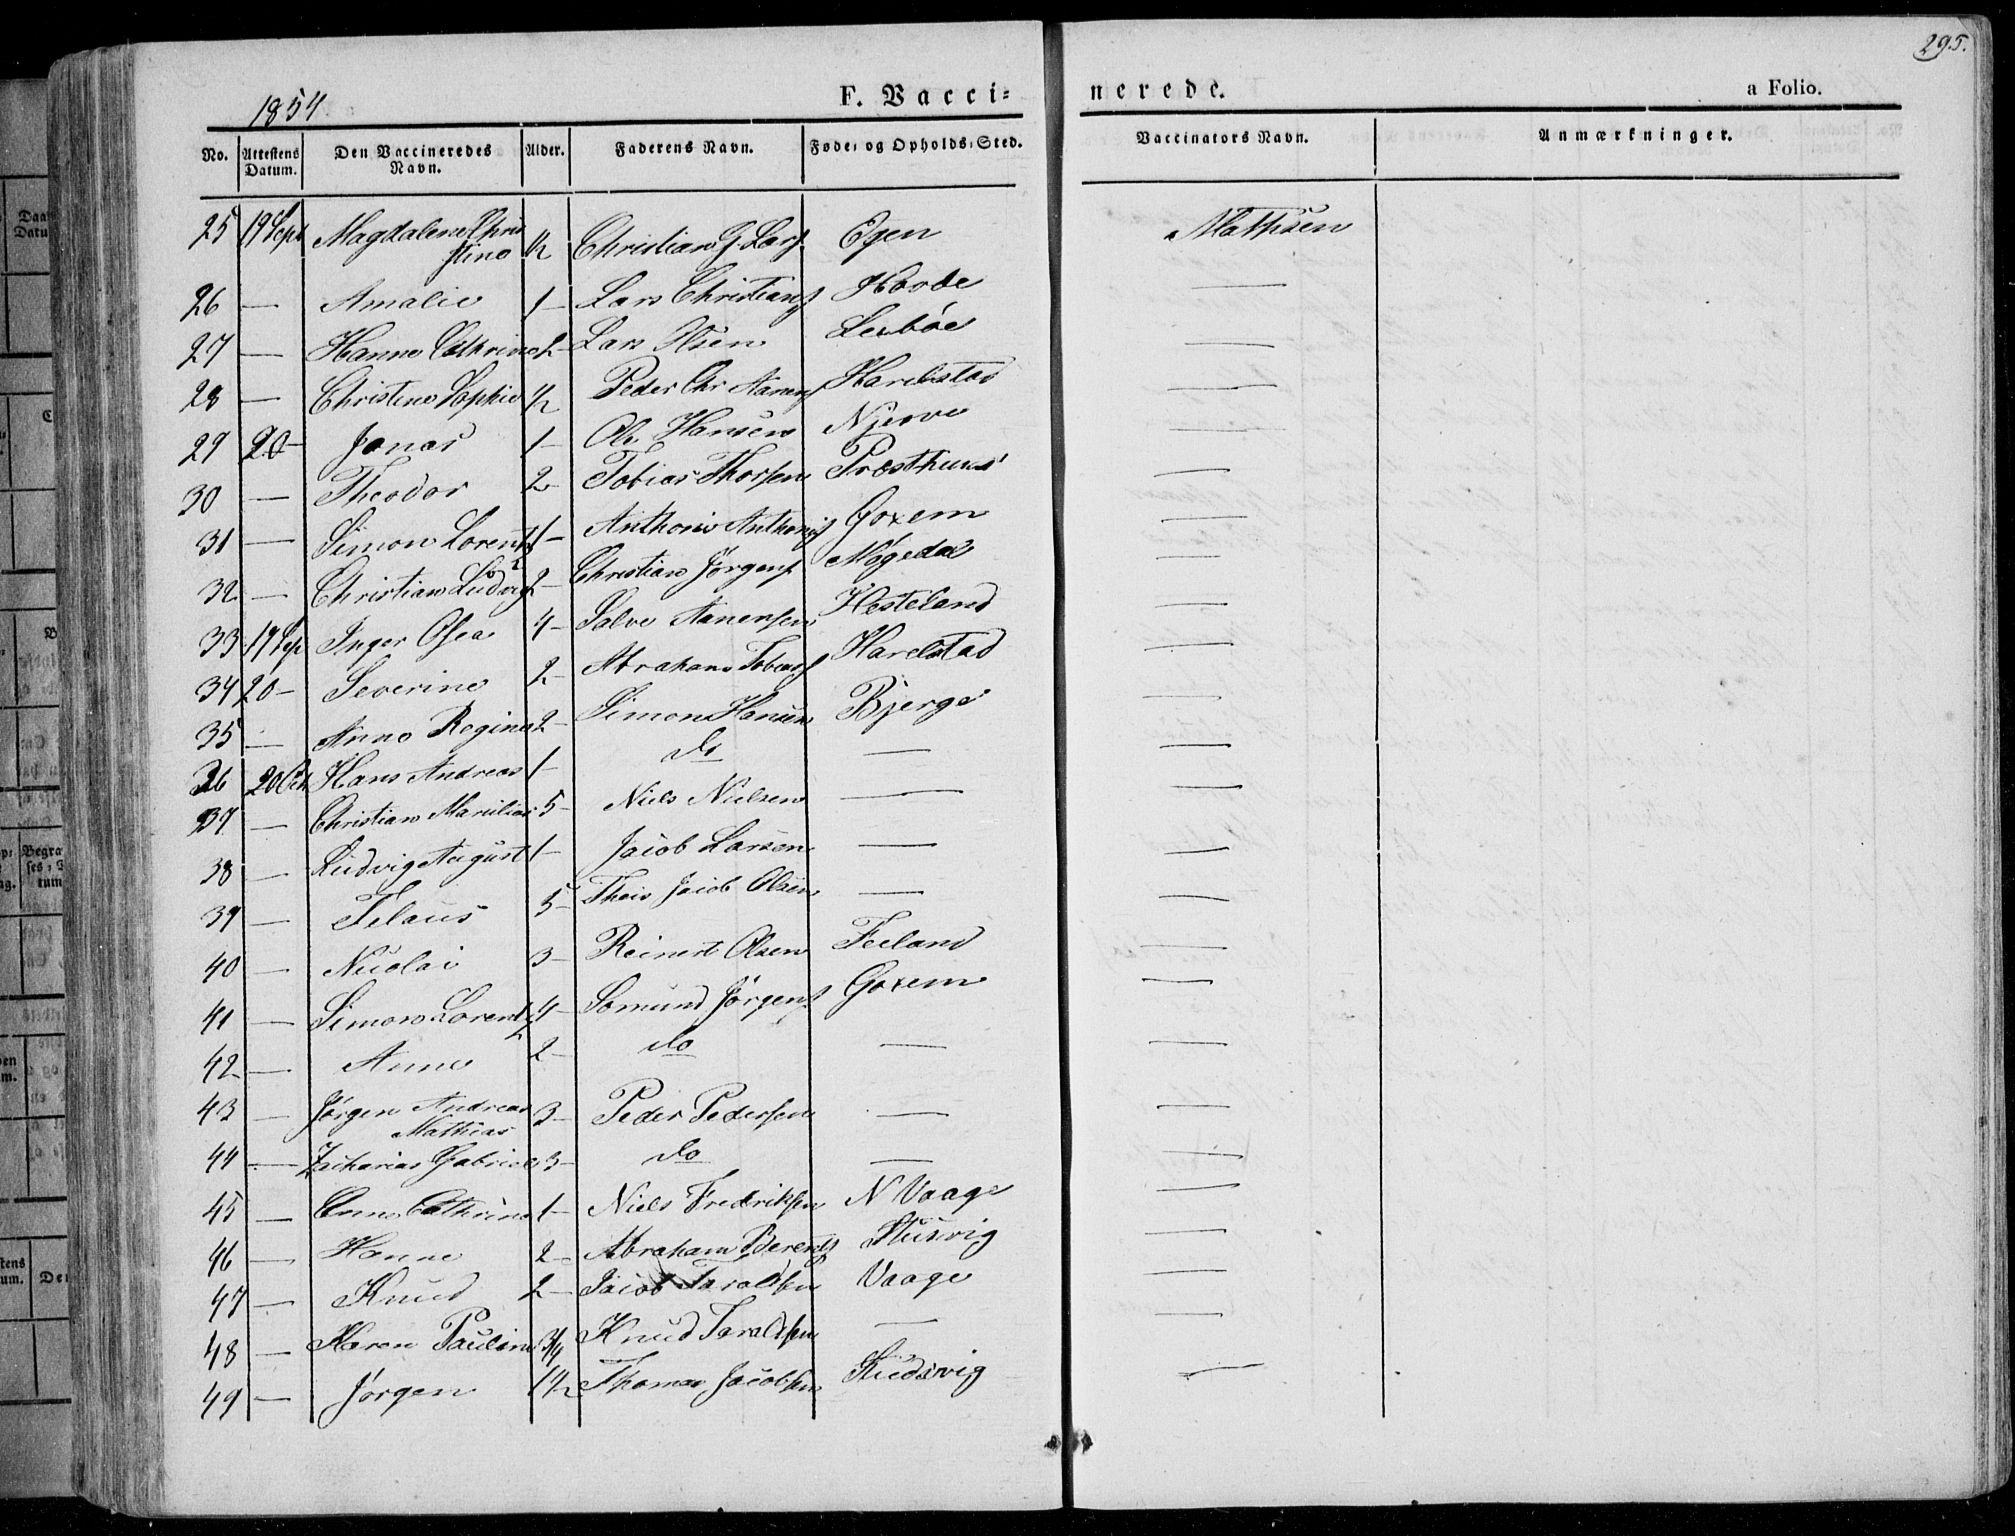 295.
1854.
F. Vacci=
nerede.
a Folio.
No. Attestens Datum. Den Vaccineredes Navn. Alder. Faderens Navn. Føde- og Opholds-Sted. Vaccinators Navn. Anmærkninger.
25 19 Sept Magdalene Chri
stine ½ Christian G. Lars. Egen Mathsen
26 — Amalie 1 — Lars Christians. —
27 — Hanne Cathrine 2 — Lars Olsen —
28 — Christine Sophie ½ Peder Chr Aanens. Harelstad —
29 20 — Jonas 1 — Ole Hansen Njerve —
30 — Theodor 2 — Tobias Thorsen Præsthuus —
31 — Simon Lorentz 1 — Anthoni Anthonis. Goxem —
32 — Christian Ludvig 2 — Christian Jørgens. Møgedal —
33 19 Sep Inger Osea 4 — Salve Aanensen Hesteland —
34 20 — Severine 2 — Abraham Tobias. Harelstad —
35 — Anne Regine 2 — Simon Hansen Bjerge —
36 20 Oct Hans Andreas 1 — do — —
37 — Christian 5 — Niels Nielsen — —
38 — Ludvig August 1 — Jacob Larsen — —
39 — Telaus 5 — Theis Jacob Olsen — —
40 — Nicolai 3 — Reinert Olsen —
41 — Simon Lorentz 4 — Gomund Jørgens. Goxem —
42 — Anne 2 — do — —
43 — Jørgen Andreas
Mathias 3 — Peder Pedersen — —
44 — Zacharias Gabriel 3 — do — —
45 — Anne Cathrine 1 — Niels Fredriksen N Vaage —
46 — Hanne 2 — Abraham Berents. —
47 — Knud 2 — Jacob Taraldsen Vaage —
48 — Karen Pauline 3/4 Knud Taraldsen — —
49 — Jørgen 1½ Thomas Jacobsen —